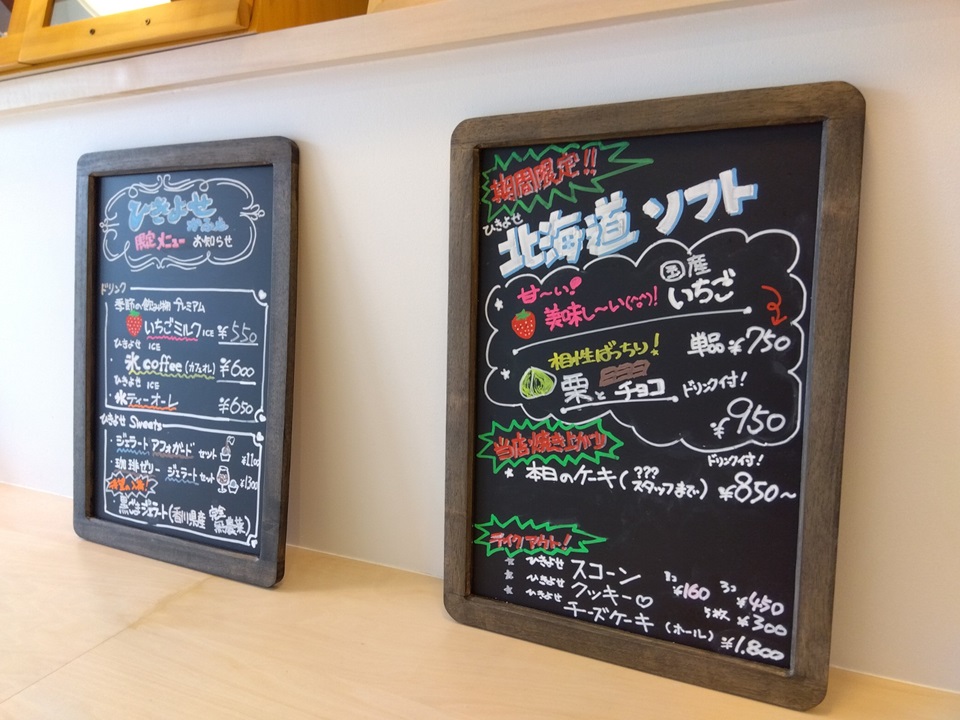 ひきよせ
限定メニュー お知らせ
ドリンク
季節の飲み物 プレミアム
いちごミルク ICE ¥550
ひきよせ ICE
氷coffee(カフェオレ) ¥600
ひきよせ ICE
・氷ティーオーレ ¥650
ひきよせ Sweets
・ジェラート アフォガード セット ¥1100
・珈琲ゼリー ジェラートセット ¥1300
・黒ごまジェラート(香川県産 無農薬)
期間限定!!
ひきよせ
北海道 ソフト
甘〜い!
美味し〜い(^^)!
国産
いちご
単品 ¥750
相性ばっちり!
栗とチョコ
ドリンク付!
¥950
当店焼き上がり
ドリンク付!
★ 本日のケーキ(???スタッフまで) ¥850〜
テイクアウト!
★ ひきよせ スコーン 1コ ¥160 3コ ¥450
★ ひきよせ クッキー♡ 5枚 ¥300
★ ひきよせ チーズケーキ (ホール) ¥1.800